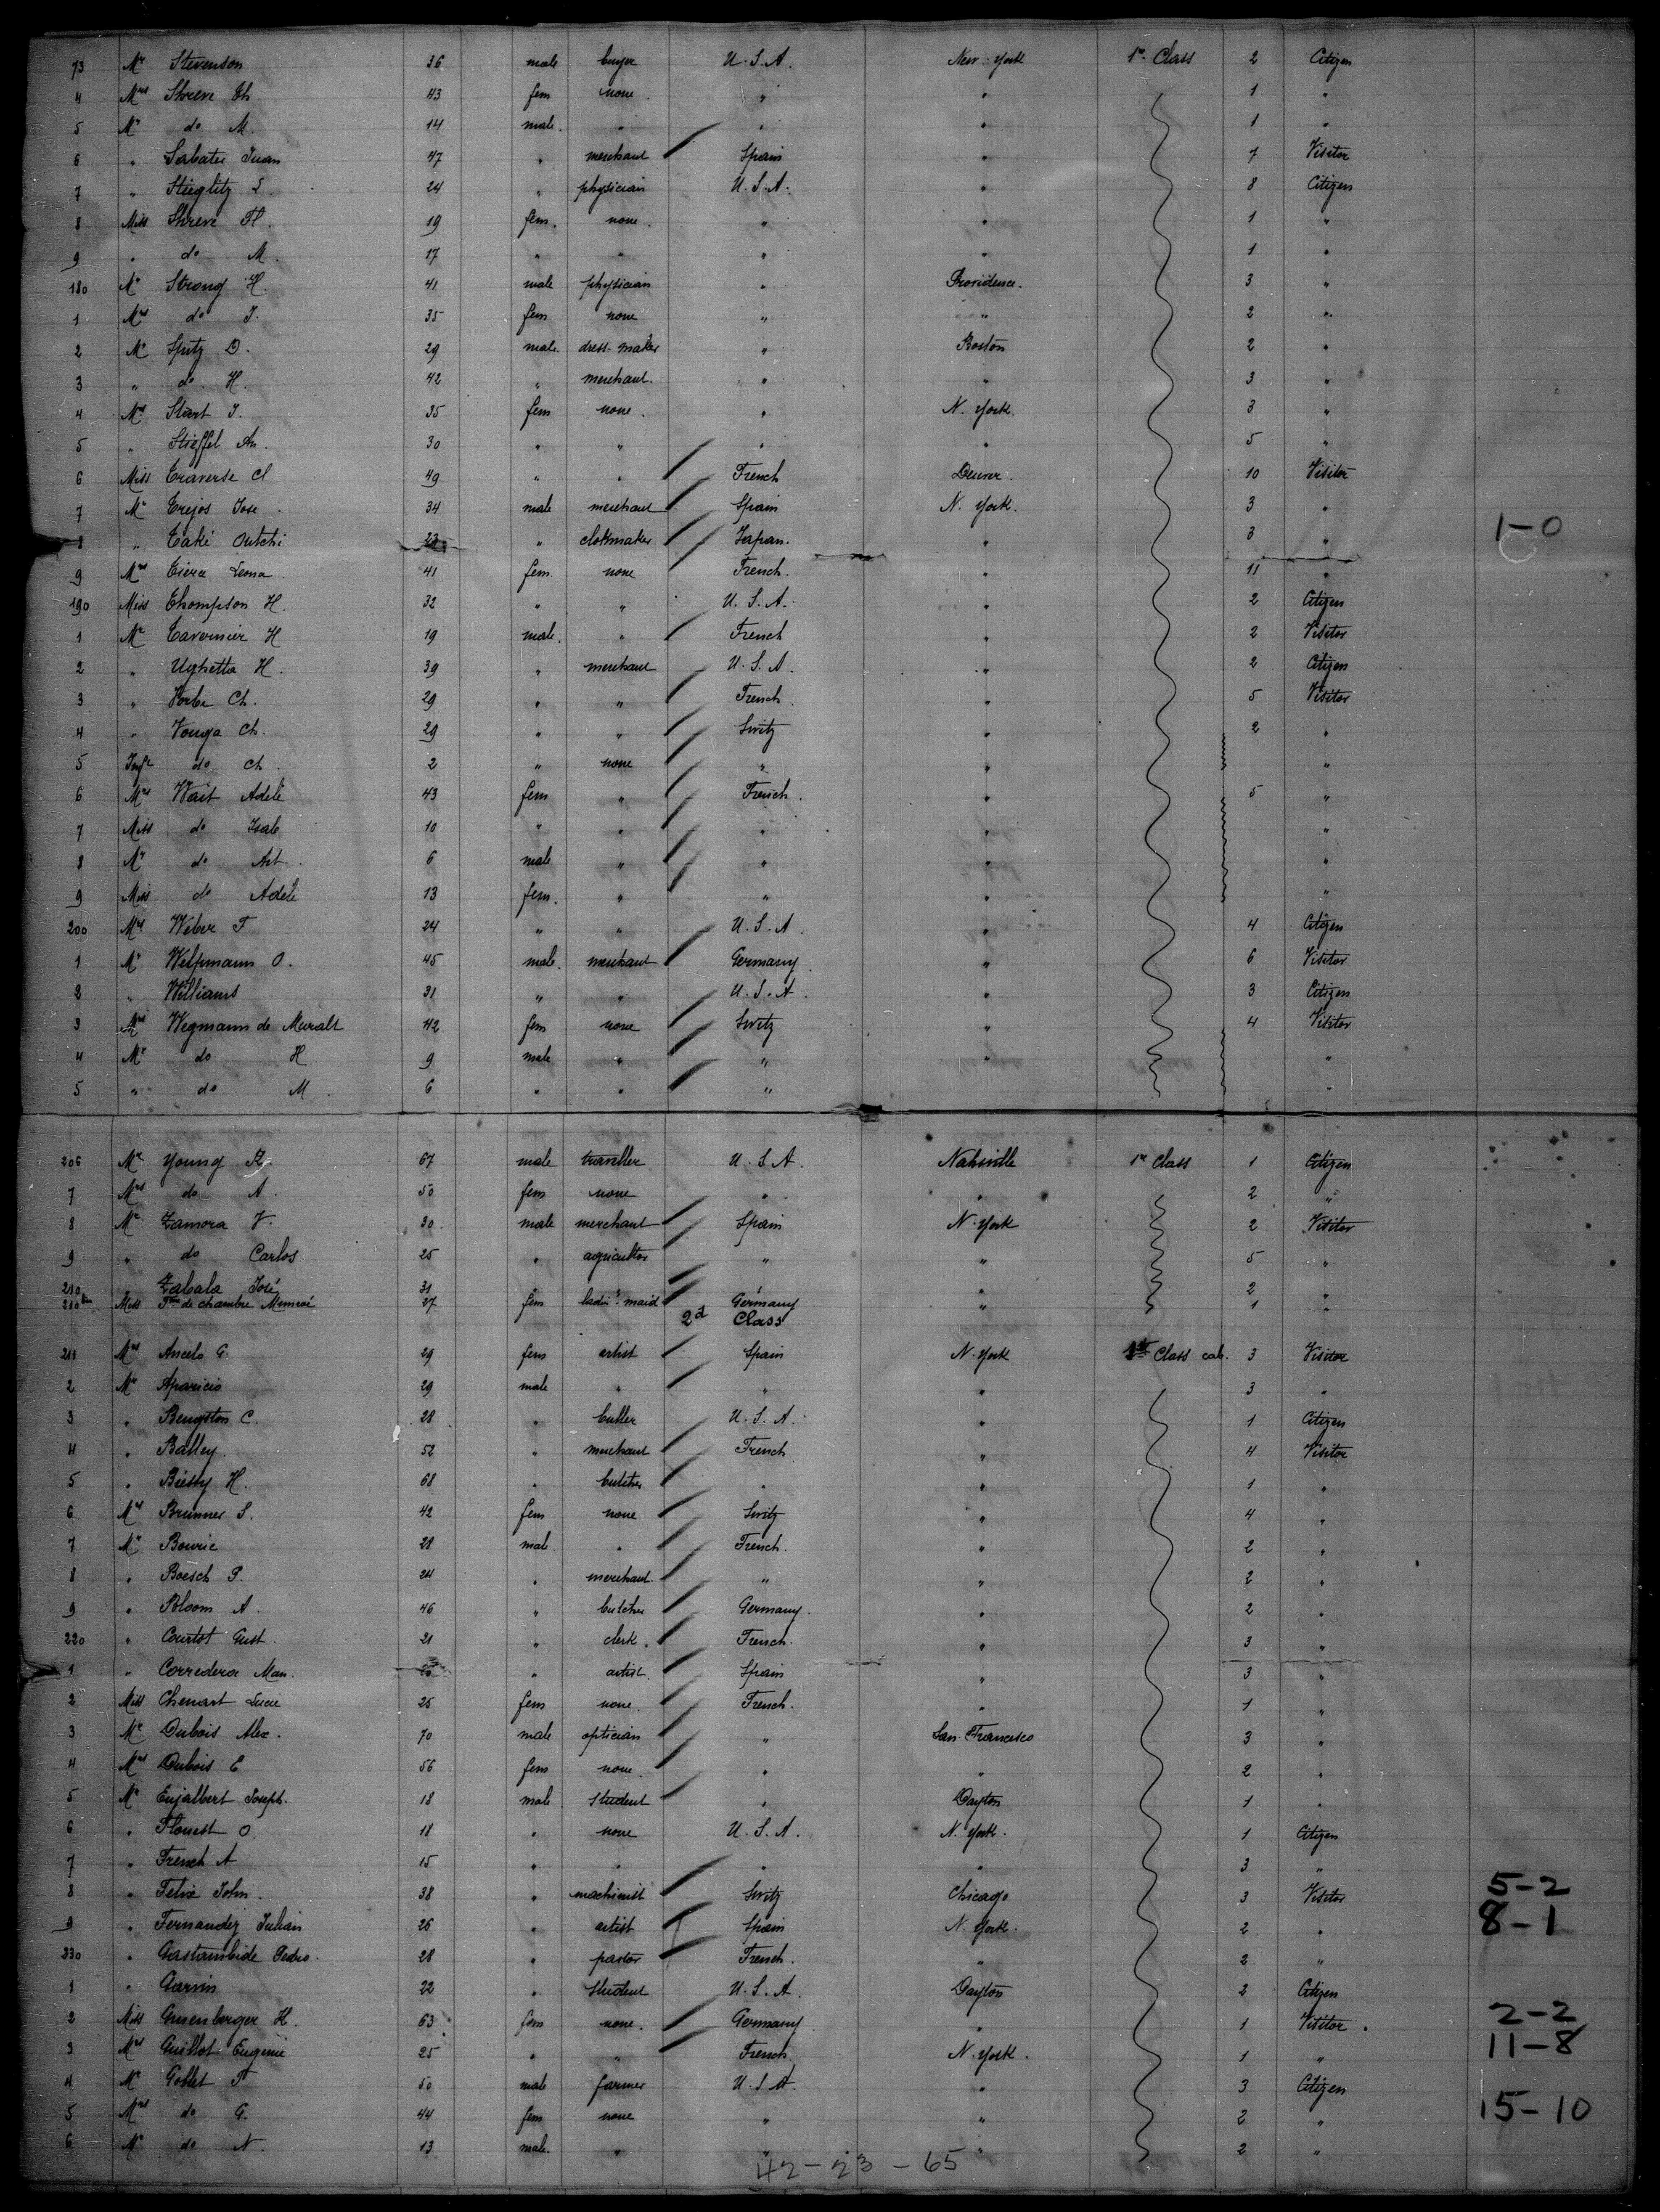 73 Mr Stevenson 36 male buyer U.S.A. New-York 1re Class 2 Citizen
4 Mrs Shreve Th 43 fem none " " 1 "
5 Mr do M. 14 male. " " " 1 "
6 " Sabater Juan 47 " merchant Spain " 7 Visitor
7 " Stieglitz L. 24 " physician U.S.A. " 8 Citizen
8 Miss Shreve Fl. 19 fem. none. " " 1 "
9 " do M. 17 " " " " 1 "
180 Mr Strong H. 41 male physician " Providence. 3 "
1 Mrs do J. 35 fem none " " 2 "
2 Mr Spitz D. 29 male dress-maker " Boston 2 "
3 " do H. 42 " merchant. " " 3 "
4 Mrs Start J. 35 fem none. " N. York. 3 "
5 " Stieffel An. 30 " " " " 5 "
6 Miss Traverse Cl 49 " " French Denver. 10 Visitor
7 Mr Trejos Jose 34 male merchant Spain N. York. 3 "
8 " Také Outchi 23 " clokmaker Japan. " 3 " 1-0
9 Mrs Tiera Leona 41 fem. none French. " 11 "
190 Miss Thompson H. 32 " " U.S.A. " 2 Citizen
1 Mr Tavernier H 19 male. " French " 2 Visitor
2 " Ughetta H. 39 " merchant U.S.A. " 2 Citizen
3 " Ch. 29 " " French. " 5 Visitor
4 " Vouga Ch. 29 " " Switz " 2 "
5 Inft do Ch. 2 " none " " "
6 Mrs Wait Adele 43 fem " French. " 5 "
7 Miss do Isab 10 " " " " "
8 Mr do Art. 6 male " " " "
9 Miss do Adele 13 fem. " " " "
200 Mrs Weber F 24 " " U.S.A. " 4 Citizen
1 Mr O. 45 male. merchant Germany. " 6 Visitor
2 " Williams 31 " " U.S.A. " 3 Citizen
3 Mrs Wegmann de Muralt 42 fem none Switz " 4 Visitor
4 Mr do H 9 male " " " "
5 " do M. 6 " " " "
206 Mr Young R. 67 male traveller U.S.A. Nahsville 1re Class 1 Citizen
7 Mrs do A. 50 fem none " " 2 "
8 Mr Zamora V. 30 male merchant Spain N-York 2 Visitor
9 " do Carlos 25 " agricultor " " 5 "
210 Zabala José 31 " " " " 2 "
210bis Miss Fme de chambre 27 fem ladie's maid Germany " 1 "
2d Class
211 Mrs Ancelo G. 29 fem artist Spain N-York Class cab. 3 Visitor
2 Mr Aparicio 29 male " " " 3 "
3 " Bengston C. 28 " butler U.S.A. " 1 Citizen
4 " Balley. 52 " merchant French " 4 Visitor
5 " Biessy H. 68 " butcher " " 1 "
6 Mrs Brunner S. 42 fem none Switz " 4 "
7 Mr Bouric 28 male " French. " 2 "
8 " Boesch P. 24 " merchant. " " 2 "
9 " Bloom A. 46 " butcher Germany. " 2 "
220 " Courtot Gust. 21 " clerk. French. " 3 "
1 " Corredera Man. " artist. Spain " 3 "
2 Miss Chenart Lucie 25 fem none. French. " 1 "
3 Mr Dubois Alex. 70 male optician " San-Francisco 3 "
4 Mrs Dubois E 56 fem none. " " 2 "
5 Mr Enjalbert Joseph. 18 male student " Dayton 1 "
6 " Flourest O. 18 " none U.S.A. N. York. 1 Citizen
7 " French A 15 " " " " 3 "
8 " Felix John. 38 " machinist Switz Chicago 3 Visitor 5-2
9 " Fernandez Julian 26 " artist Spain N. York. 2 " 8-1
230 " Gastambide Pedro. 28 " pastor French. " 2 "
1 " Garvin 22 " Student U.S.A. Dayton 2 Citizen
2 Miss Gusenberger H. 63 fem none. Germany. " 1 Visitor. 2-2
3 Mrs Guillot Eugenie 25 " " French. N-York. 1 " 11-8
4 Mr Goblet F 50 male farmer U.S.A. " 3 Citizen
5 Mrs do G. 44 fem none " " 2 " 15-10
6 Mr do N. 13 male. " " " 2 "
42-23-65